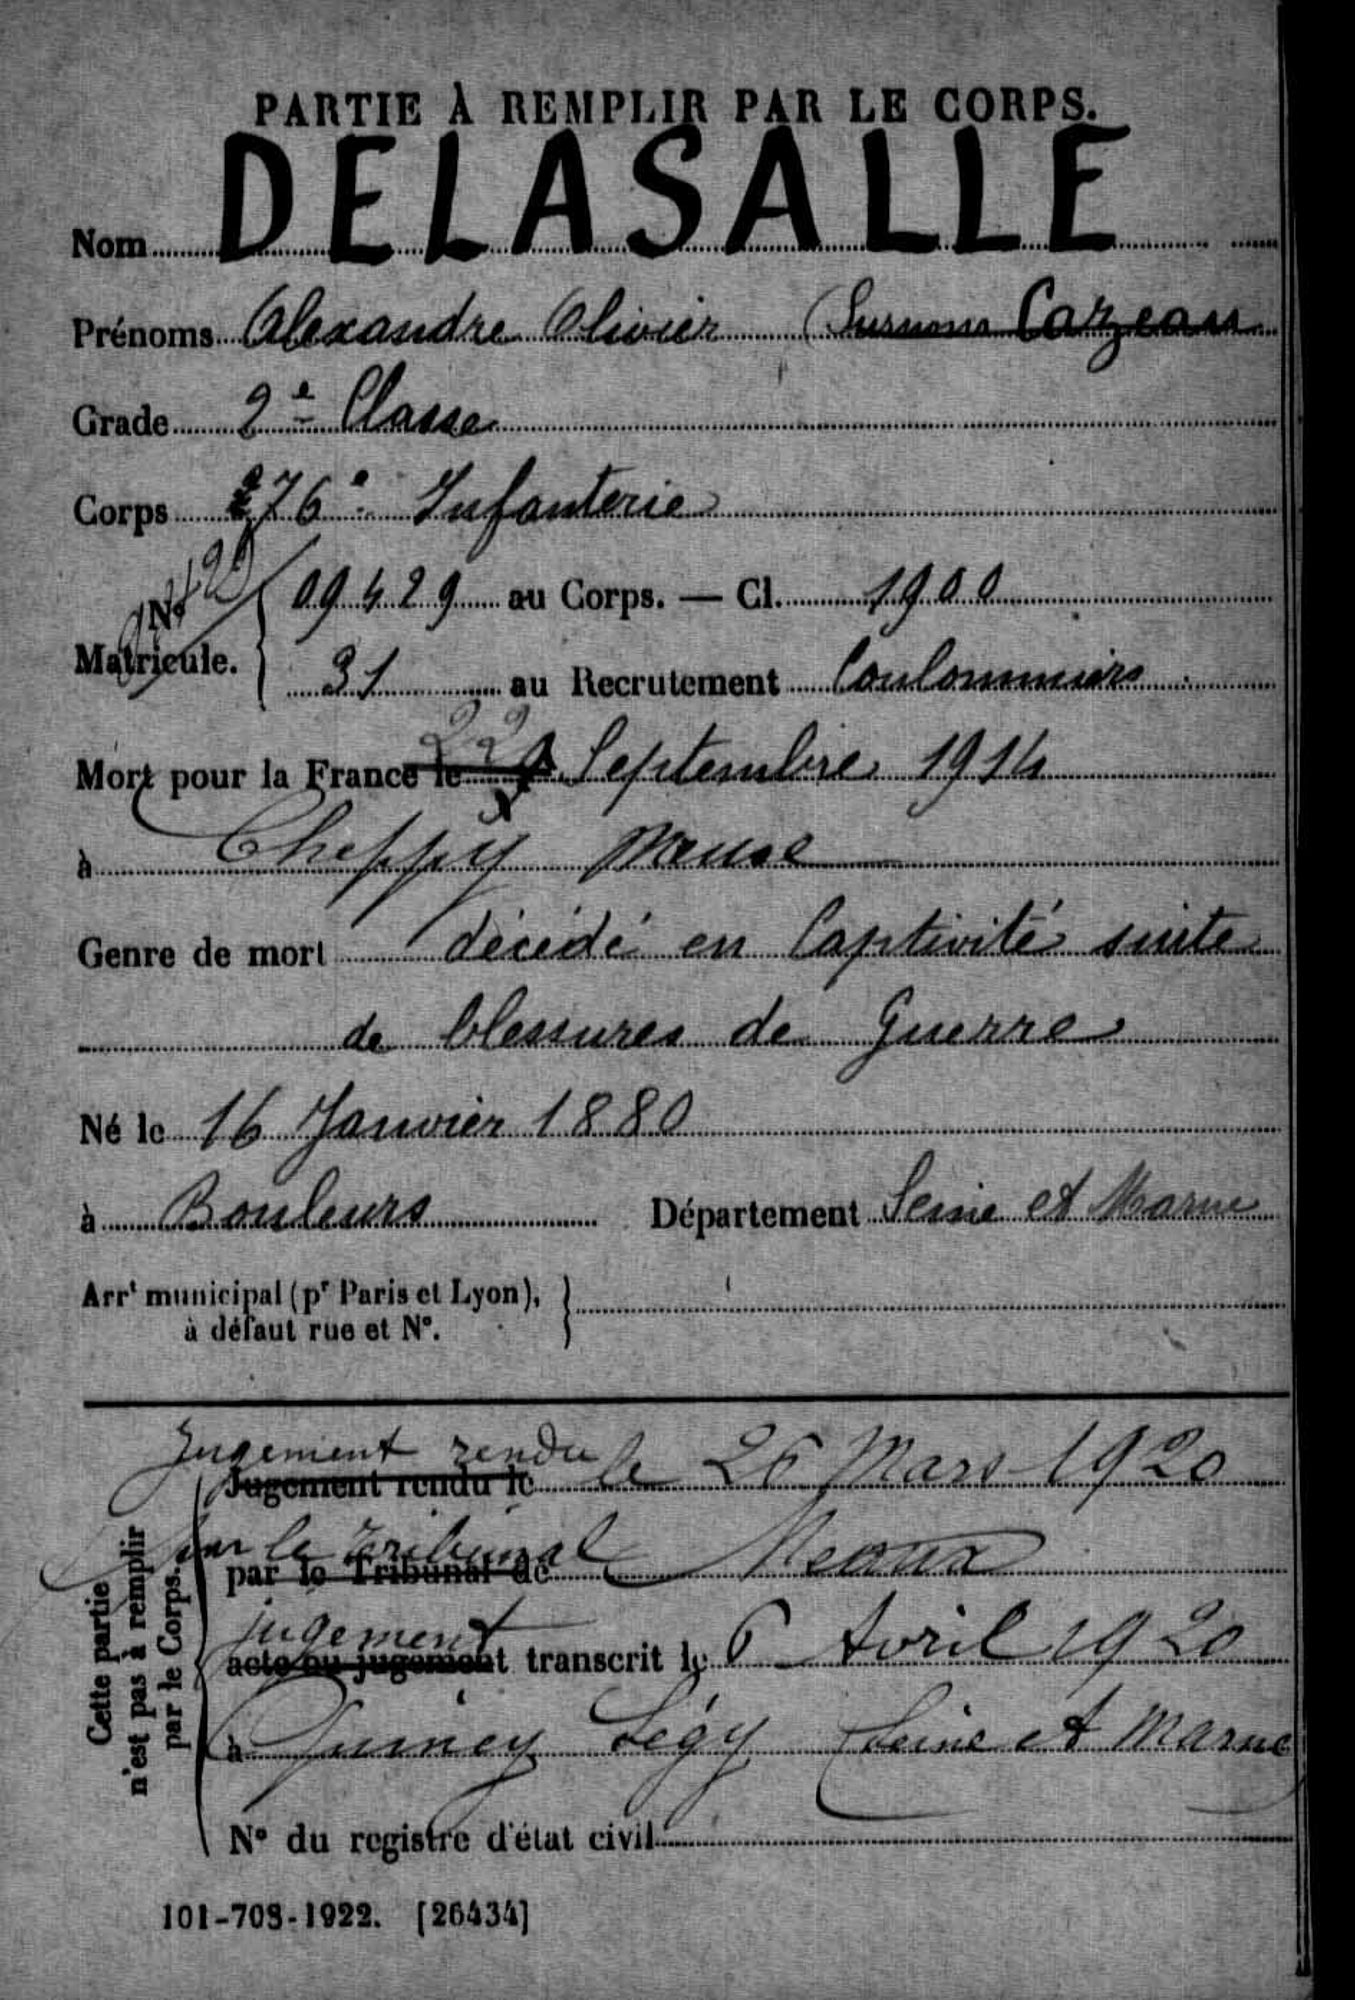 PARTIE À REMPLIR PAR LE CORPS.
Nom DELASALLE
Prénoms Alexandre Olivier (Surnom Cazeau
Grade 2e Classe
Corps 276e Infanterie
No Matricule. 09429 au Corps. — Cl. 1900
31 au Recrutement Coulommiers
Mort pour la France le 22 Septembre 1914
à Cheppy Meuse
Genre de mort décédé en Captivité suite
de blessures de Guerre
Né le 16 Janvier 1880
à Bouleurs Département Seine et Marne
Arrt municipal (pr Paris et Lyon),
à défaut rue et N°.
Jugement rendu le 26 Mars 1920
Jugement rendu le
par le Tribunal Meaux
par le Tribunal de
jugement
acte ou jugement transcrit le 6 Avril 1920
à Quincy Ségy Seine et Marne
N° du registre d'état civil
Cette partie
n'est pas à remplir
par le Corps.
101-708-1922. [26434]